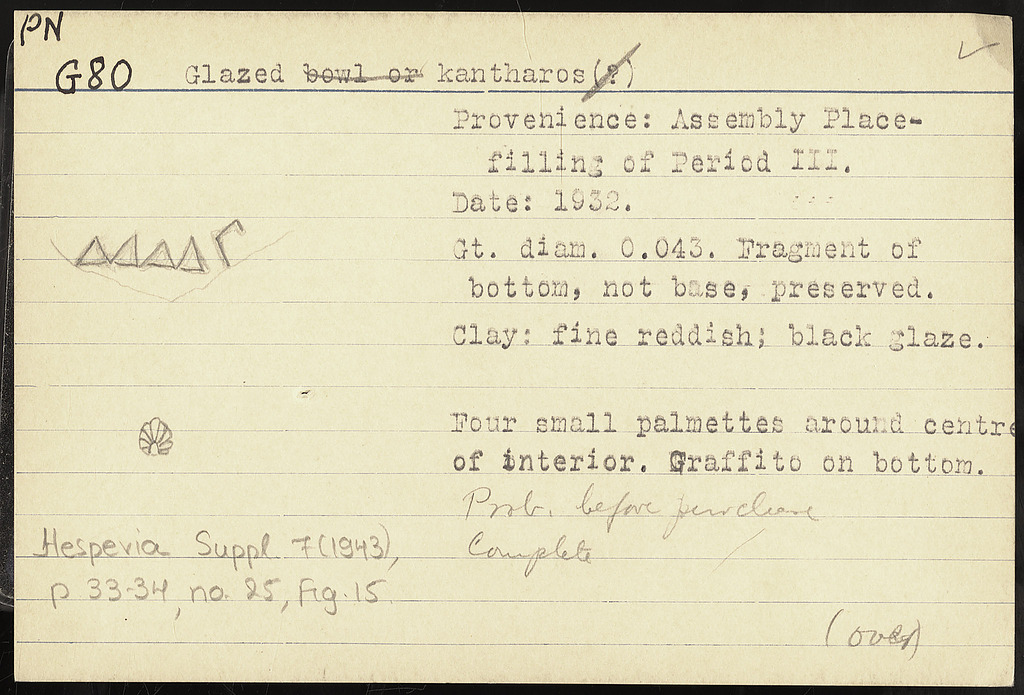 PN
G80 Glazed bowl or kantharos(?)
Provenience: Assembly Place-
filling of Period III.
Date: 1932.
ΔΔΔΔΓ
Gt. diam. 0.043. Fragment of
bottom, not base, preserved.
Clay: fine reddish; black glaze.
Four small palmettes around centre
of interior. Graffito on bottom.
Prob. before purchase
Complete
Hesperia Suppl 7(1943),
p 33-34, no. 25, Fig. 15.
(over)